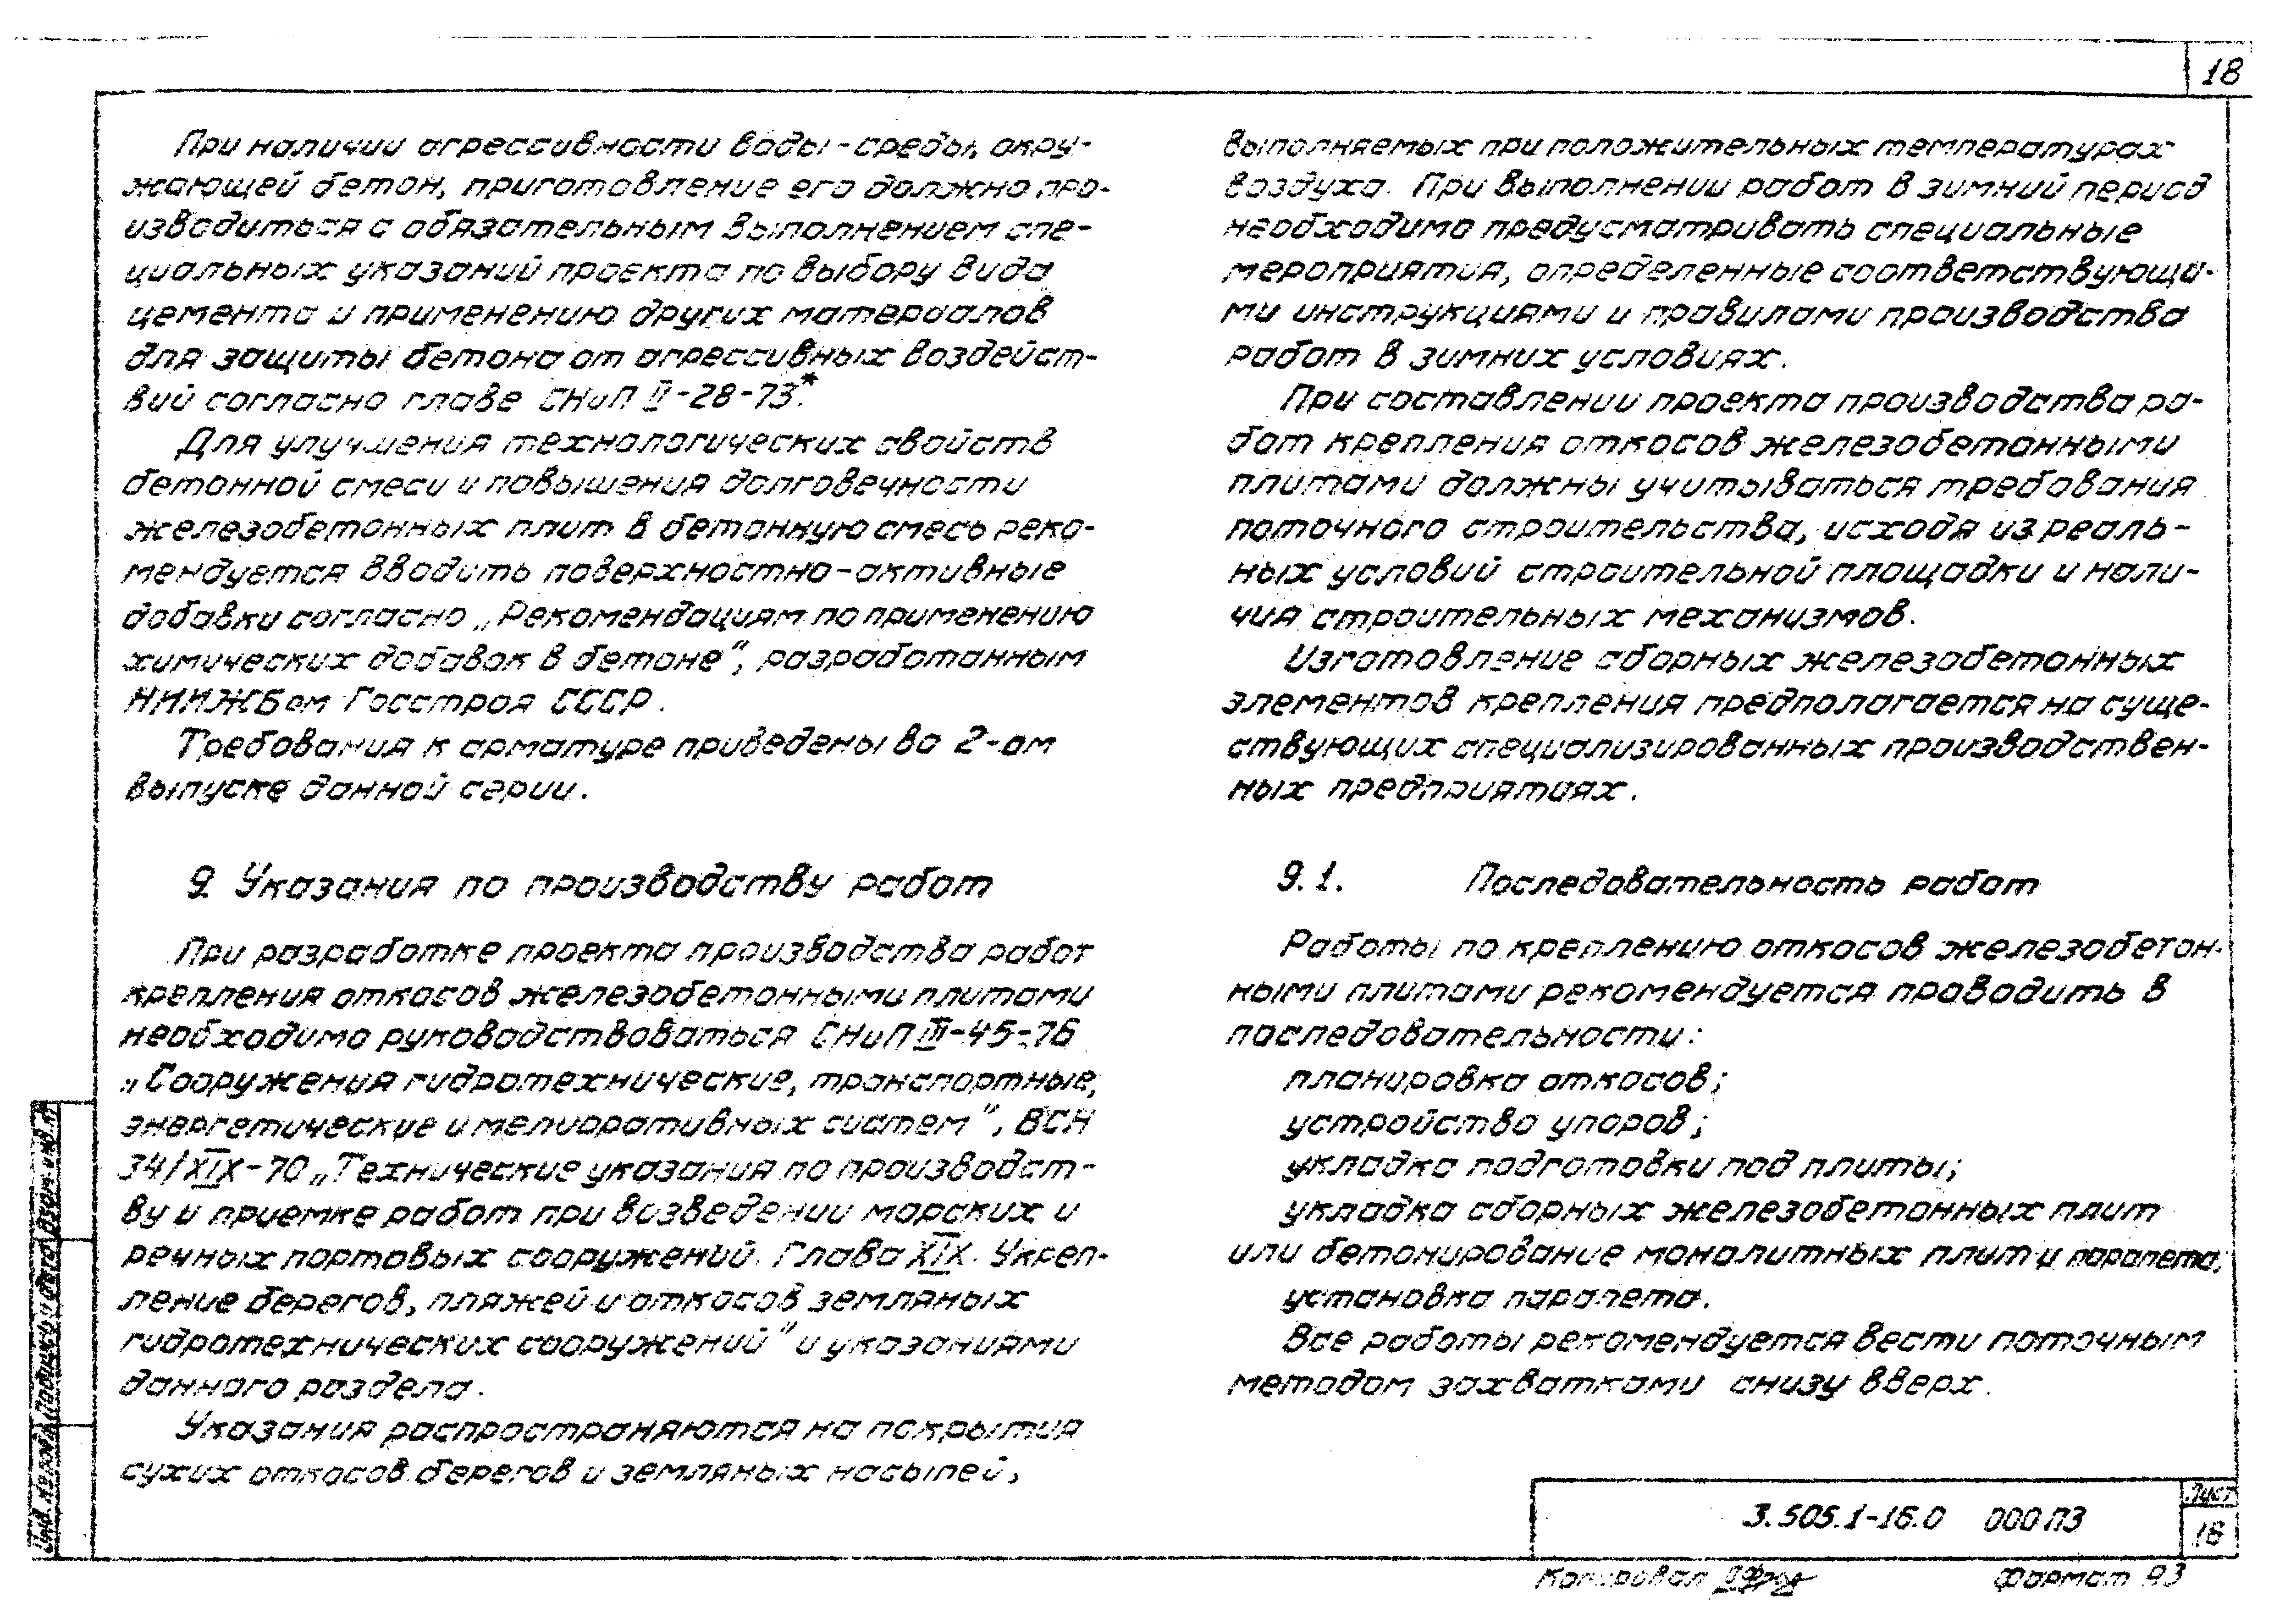 18
При наличии агрессивности воды-среды, окру-
жающей бетон, приготовление его должно про-
изводиться с обязательным выполнением спе-
циальных указаний проекта по выбору вида
цемента и применению других материалов
для защиты бетона от агрессивных воздейст-
вий согласно главе СНиП II-28-73*.
Для улучшения технологических свойств
бетонной смеси и повышения долговечности
железобетонных плит в бетонную смесь реко-
мендуется вводить поверхностно-активные
добавки согласно „Рекомендациям по применению
химических добавок в бетоне", разработанным
НИИЖБом Госстроя СССР.
Требования к арматуре приведены во 2-ом
выпуске данной серии.
9. Указания по производству работ
При разработке проекта производства работ
крепления откосов железобетонными плитами
необходимо руководствоваться СНиП III-45-76
„Сооружения гидротехнические, транспортные,
энергетические и мелиоративных систем", ВСН
34/XIX-70 „Технические указания по производст-
ву и приемке работ при возведении морских и
речных портовых сооружений. Глава XIX. Укреп-
ление берегов, пляжей и откосов земляных
гидротехнических сооружений" и указаниями
данного раздела.
Указания распространяются на покрытия
сухих откосов берегов и земляных насыпей,
выполняемых при положительных температурах
воздуха. При выполнении работ в зимний период
необходимо предусматривать специальные
мероприятия, определенные соответствующи-
ми инструкциями и правилами производства
работ в зимних условиях.
При составлении проекта производства ра-
бот крепления откосов железобетонными
плитами должны учитываться требования
поточного строительства, исходя из реаль-
ных условий строительной площадки и нали-
чия строительных механизмов.
Изготовление сборных железобетонных
элементов крепления предполагается на суще-
ствующих специализированных производствен-
ных предприятиях.
9.1. Последовательность работ
Работы по креплению откосов железобетон-
ными плитами рекомендуется проводить в
последовательности:
планировка откосов;
устройство упоров;
укладка подготовки под плиты;
укладка сборных железобетонных плит
или бетонирование монолитных плит и парапета;
установка парапета.
Все работы рекомендуется вести поточным
методом захватками снизу вверх.
Инв. № подл. Подпись и дата Взам. инв. №
3.505.1-16.0 000ПЗ
Лист
16
Копировал
Формат А3